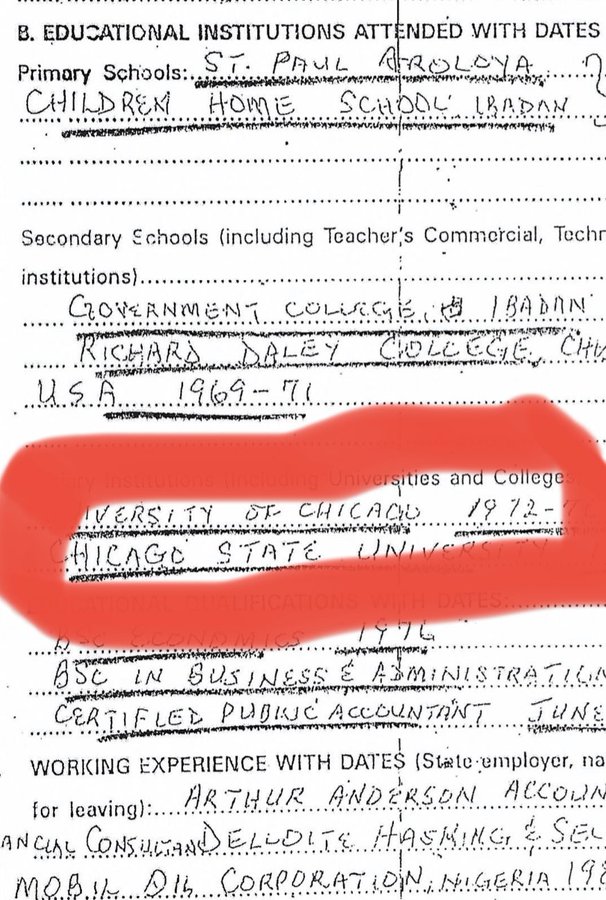 B. EDUCATIONAL INSTITUTIONS ATTENDED WITH DATES
Primary Schools: ST. PAUL AROLOYA
CHILDREN HOME SCHOOL IBADAN
Secondary Schools (including Teacher's Commercial, Techn
institutions)
GOVERNMENT COLLEGE, IBADAN
RICHARD DALEY COLLEGE, CHI
USA 1969-71
ry Institutions (including Universities and Colleges
IVERSITY OF CHICAGO 1972-76
CHICAGO STATE UNIVERSITY
QUALIFICATIONS WITH DATES:
BSC ECONOMICS 1976
BSC IN BUSINESS & ADMINISTRATION
CERTIFIED PUBLIC ACCOUNTANT JUNE
WORKING EXPERIENCE WITH DATES (State employer, na
for leaving): ARTHUR ANDERSON ACCOUN
ANCIAL CONSULTAN DELLOITE HASKING & SEL
MOBIL OIL CORPORATION, NIGERIA 198